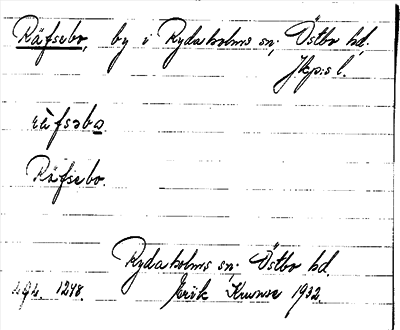 Räfsebo, by i Rydaholms sn, Östbo hd,
Jkp:s l.
räfsəbo
Räfsebo.
Rydaholms sn; Östbo hd.
1248. Erik 1932